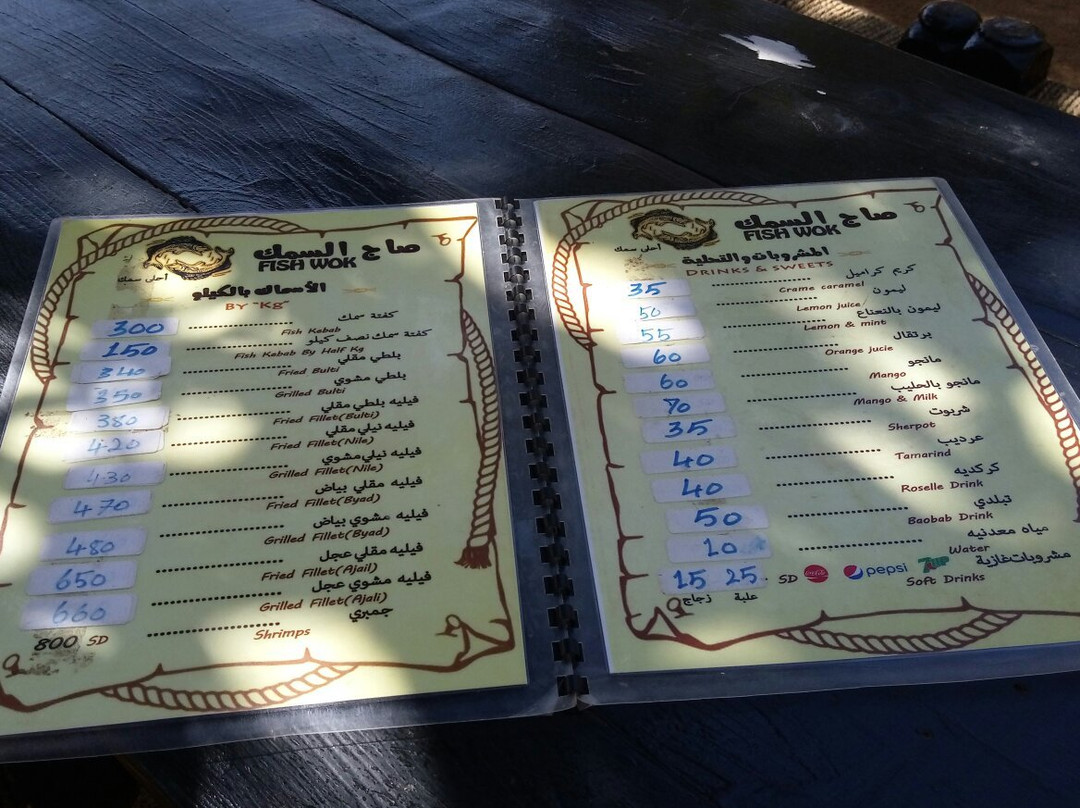 صاج السمك
FISH WOK
أحلى سمك
الأسماك بالكيلو
BY "Kg"
300 كفتة سمك
Fish Kabab
150 كفتة سمك نصف كيلو
Fish Kabab By Half Kg
340 بلطي مقلي
Fried Bulti
350 بلطي مشوي
Grilled Bulti
380 فيليه بلطي مقلي
Fried Fillet(Bulti)
420 فيليه نيلي مقلي
Fried Fillet(Nile)
430 فيليه نيلي مشوي
Grilled Fillet(Nile)
470 فيليه مقلي بياض
Fried Fillet(Byad)
480 فيليه مشوي بياض
Grilled Fillet(Byad)
650 فيليه مقلي عجل
Fried Fillet(Ajail)
660 فيليه مشوي عجل
Grilled Fillet(Ajali)
800 SD جمبري
Shrimps
صاج السمك
FISH WOK
أحلى سمك
المشروبات والتحلية
DRINKS & SWEETS
35 كرم كراميل
Crame caramel
50 ليمون
Lemon juice
55 ليمون بالنعناع
Lemon & mint
60 برتقال
Orange jucie
60 مانجو
Mango
70 مانجو بالحليب
Mango & Milk
35 شربوت
Sherpot
40 عرديب
Tamarind
40 كركديه
Roselle Drink
50 تبلدي
Baobab Drink
10 مياه معدنيه
Water
15 25 SD Coca-Cola pepsi 7UP مشروبات غازية
Soft Drinks
زجاج علبة